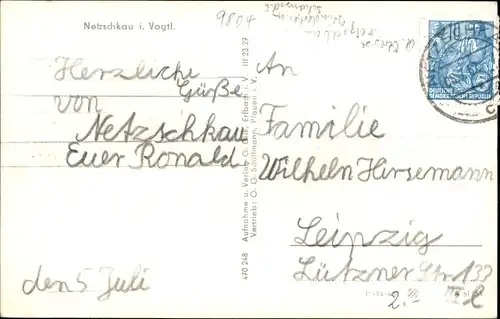 Netzschkau i. Vogtl.
9804
Herzliche
Grüße
von
Netzschkau
Euer Ronald
den 5 Juli
III 23 29
470 248 Aufnahme u. Verlag G. Erlbach i. V.
Vertrieb: O. G. Schillmann, Plauen i. V.
DEUTSCHE
DEMOKRATISCHE REPUBLIK
An
Familie
Wilhelm Hersemann
Leipzig
Lützner Str 132
2.-